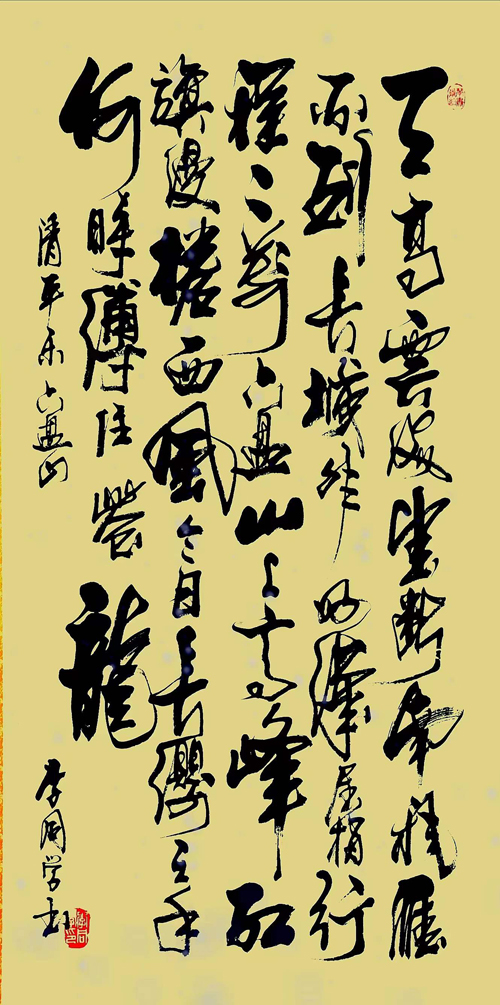 天高雲淡望斷南飛雁
不到長城非好漢屈指行
程二萬六盘山上高峰紅
旗漫捲西風今日長纓在手
何時縛住蒼龍
清平乐六盘山
李同学书